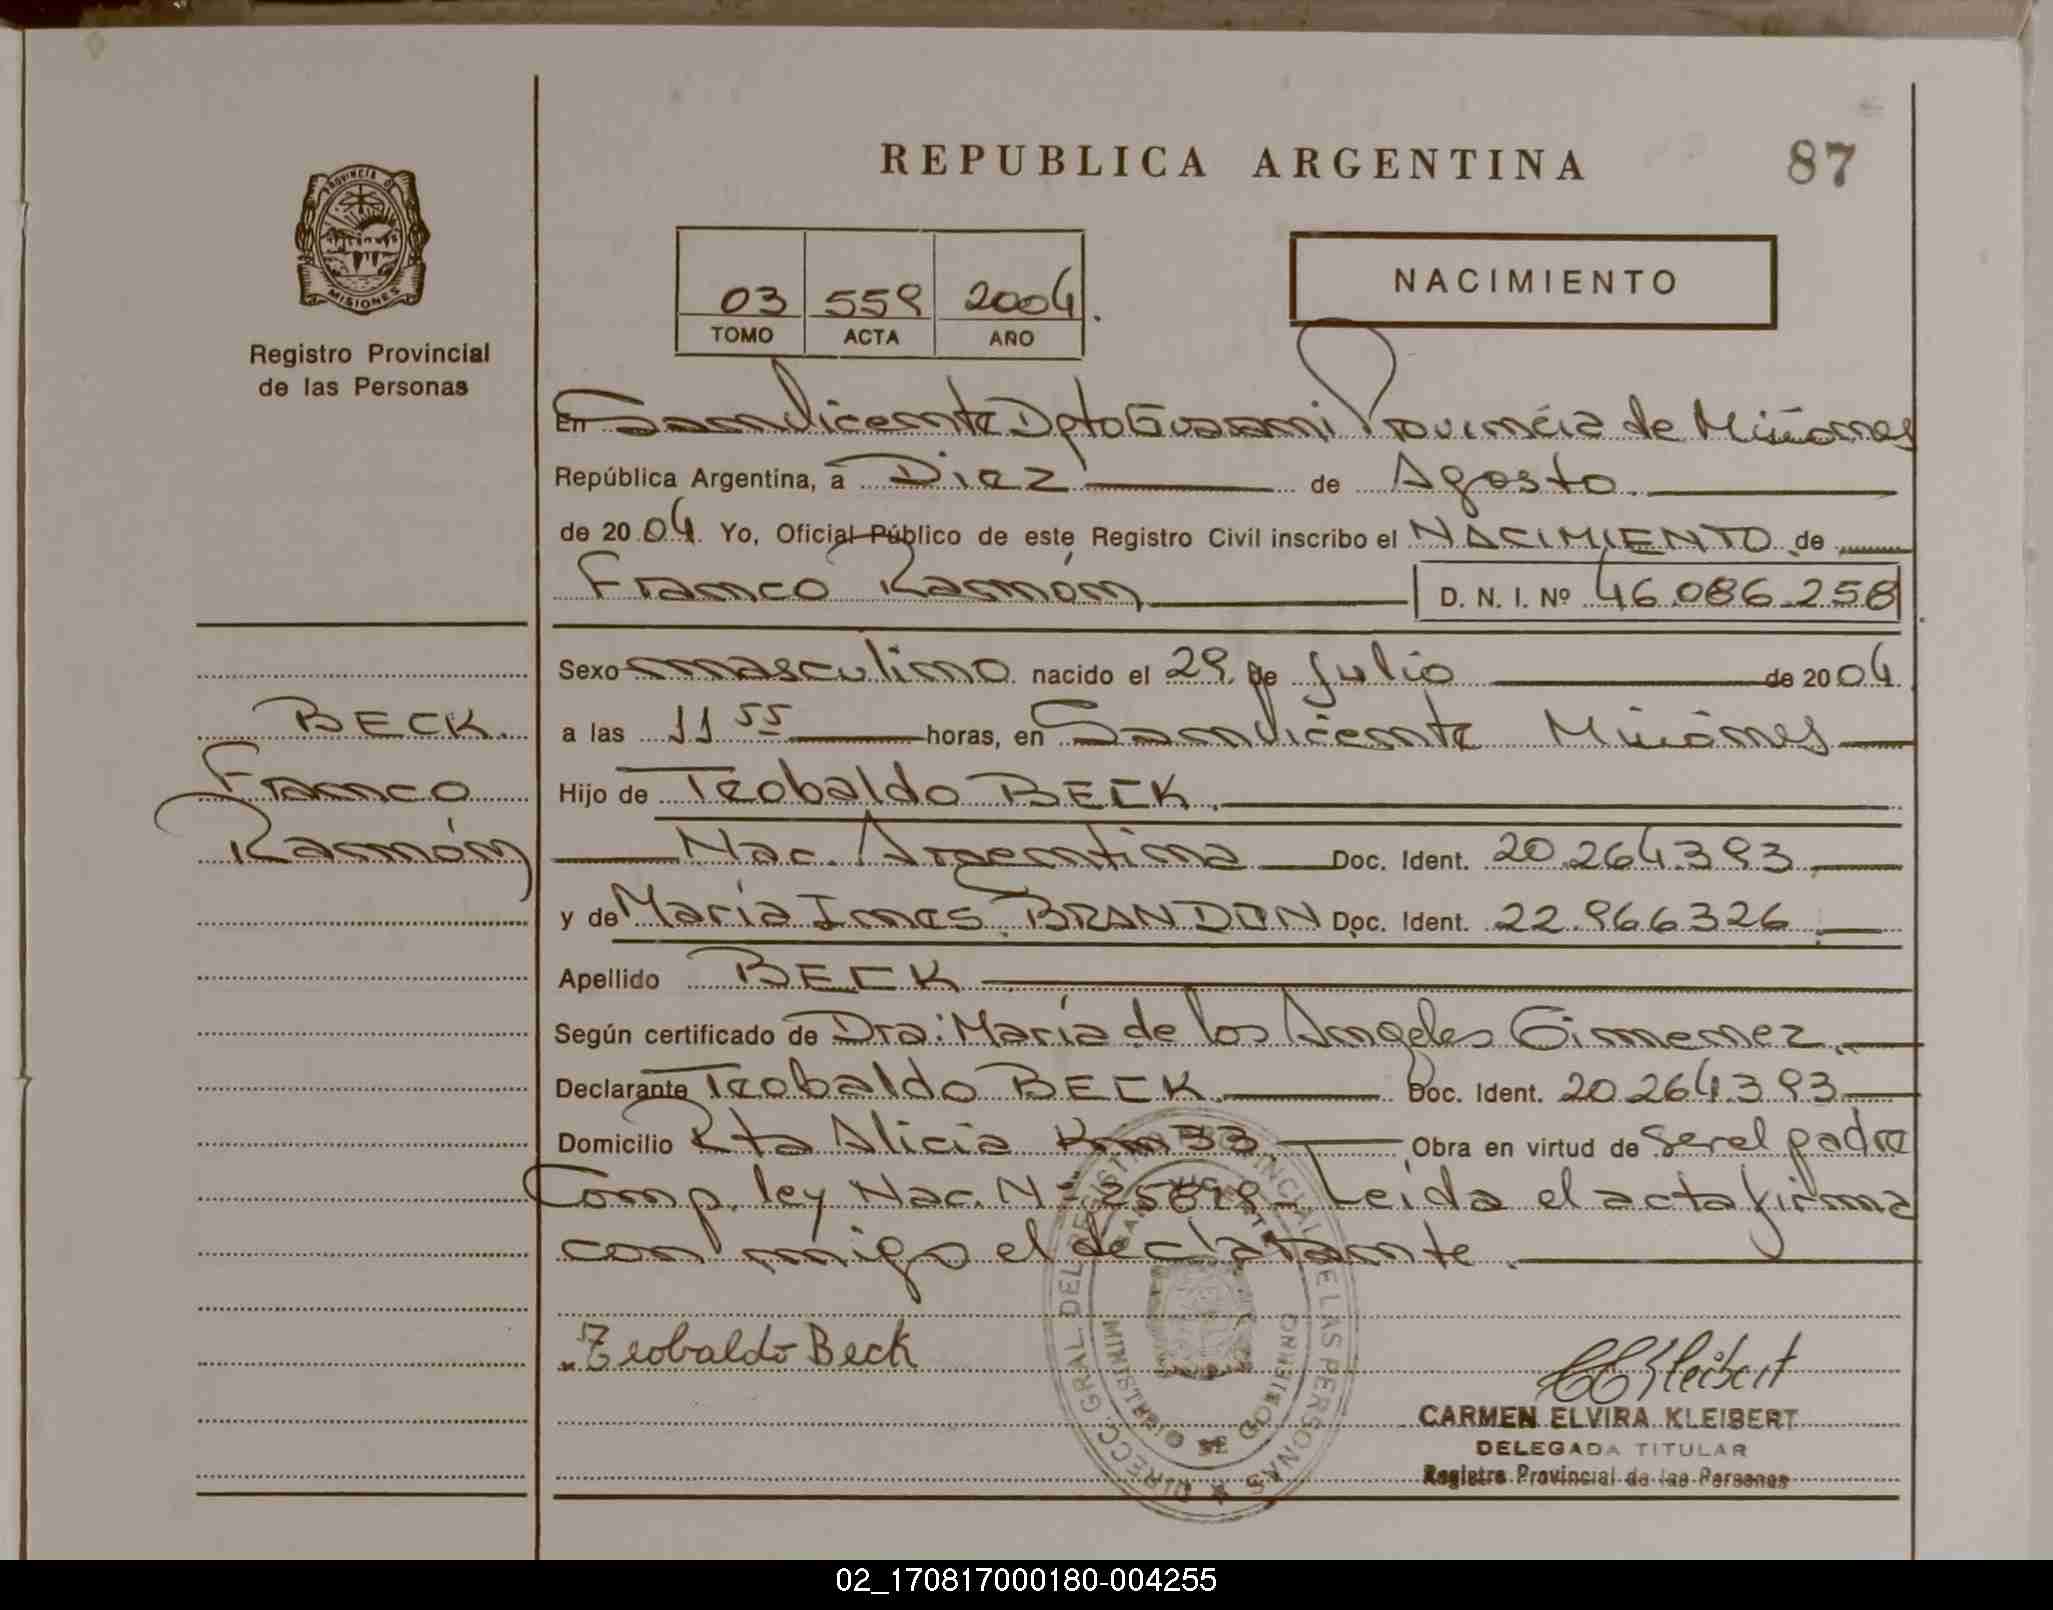 REPUBLICA ARGENTINA
87
PROVINCIA DE
MISIONES
Registro Provincial
de las Personas
03 559 2004.
TOMO ACTA AÑO
NACIMIENTO
En San Vicente Dpto Guarani Provincia de Misiones
República Argentina, a Diez de Agosto
de 2004. Yo, Oficial Público de este Registro Civil inscribo el NACIMIENTO de
Franco Ramón D. N. I. Nº 46.086.258
Sexo masculino nacido el 29 de Julio de 2004
BECK.
a las 11 55 horas, en San Vicente Misiones
Franco
Hijo de Teobaldo BECK.
Ramón
Nac. Argentina Doc. Ident. 20.264.393
y de María Ines BRANDON Doc. Ident. 22.966.326.
Apellido BECK
Según certificado de Dra: María de los Angeles Gimenez.
Declarante Teobaldo BECK. Doc. Ident. 20.264.393
Domicilio Rta Alicia Km 33. Obra en virtud de ser el padre
Comp. ley Nac. Nº 25819- Leida el acta firma
con migo el declarante.
Teobaldo Beck
CEKleibert
CARMEN ELVIRA KLEIBERT
DELEGADA TITULAR
Registro Provincial de las Personas
DIRECC. GRAL. DEL REGISTRO PROVINCIAL DE LAS PERSONAS
MINISTERIO DE GOBIERNO
SAN VICENTE
02_170817000180-004255